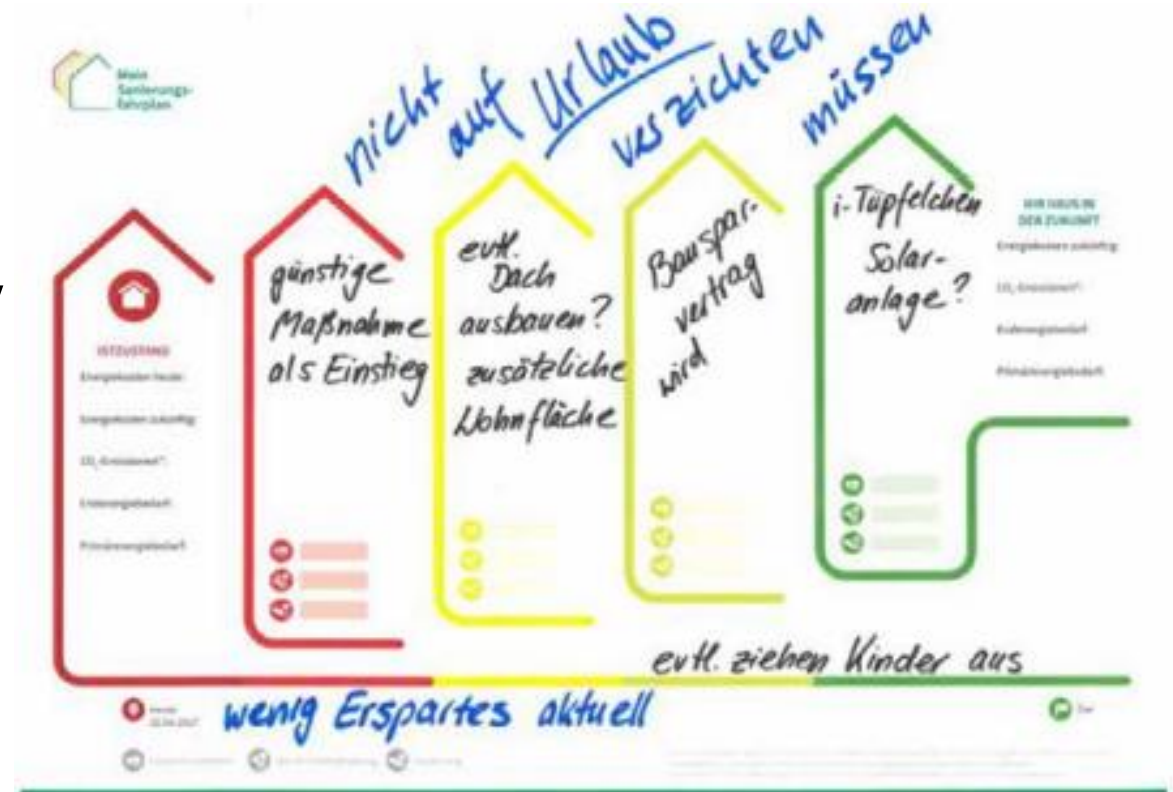 Mein
Sanierungs-
fahrplan
nicht auf Urlaub verzichten müssen
ISTZUSTAND
Energiekosten heute:
Energiekosten zukünftig:
CO₂-Emissionen*:
Endenergiebedarf:
Primärenergiebedarf:
günstige
Maßnahme
als Einstieg
evtl.
Dach
ausbauen?
zusätzliche
Wohnfläche
Bauspar-
vertrag
wird
i-Tüpfelchen
Solar-
anlage?
IHR HAUS IN
DER ZUKUNFT
Energiekosten zukünftig:
CO₂-Emissionen*:
Endenergiebedarf:
Primärenergiebedarf:
evtl. ziehen Kinder aus
wenig Erspartes aktuell
Ziel